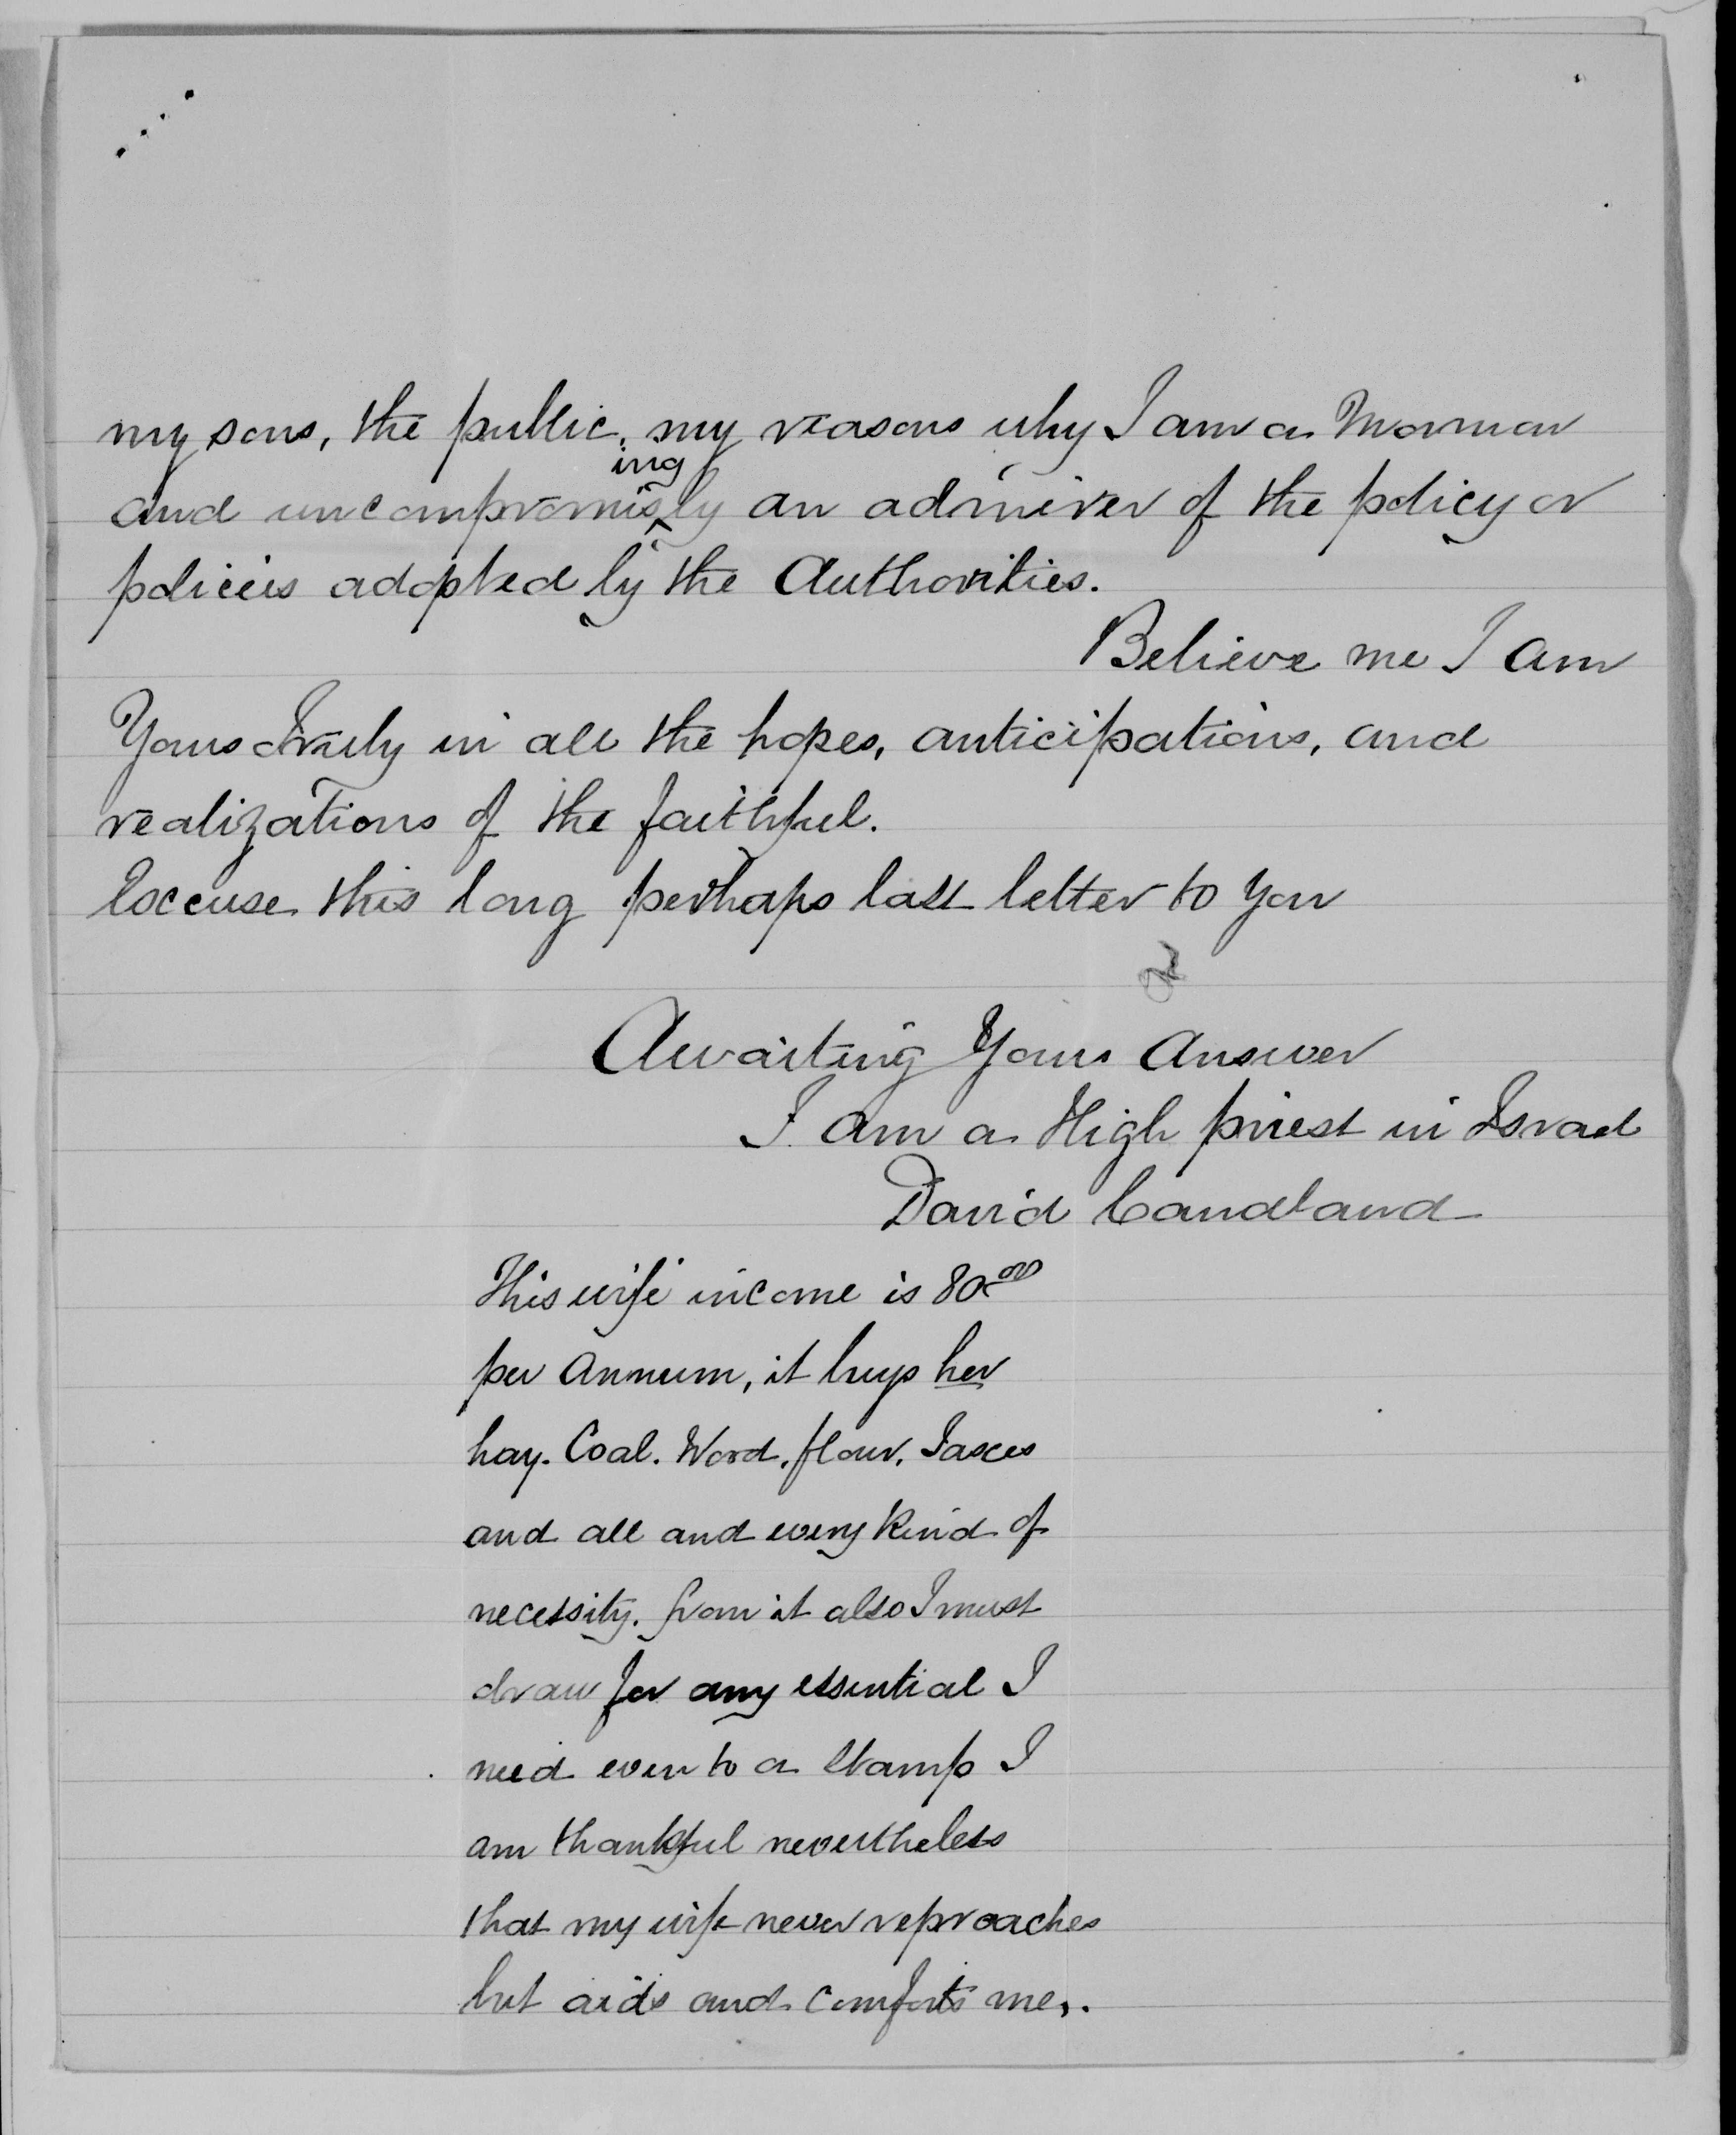 my sons, the public, my reasons why I am a Mormon
and uncompromisingly an admirer of the policy or
policies adopted by the Authorities.
Believe me I am
Yours Truly in all the hopes, anticipations, and
realizations of the faithful.
Excuse this long perhaps last letter to you
Awaiting Your Answer
I am a High priest in Israel
David Candland
This wife income is 80.00
per Annum, it buys her
hay. Coal. Wood. flour. Taxes
and all and every kind of
necessity. from it also I must
draw for any essential I
need even to a stamp I
am thankful nevertheless
that my wife never reproaches
but aids and comforts me,.